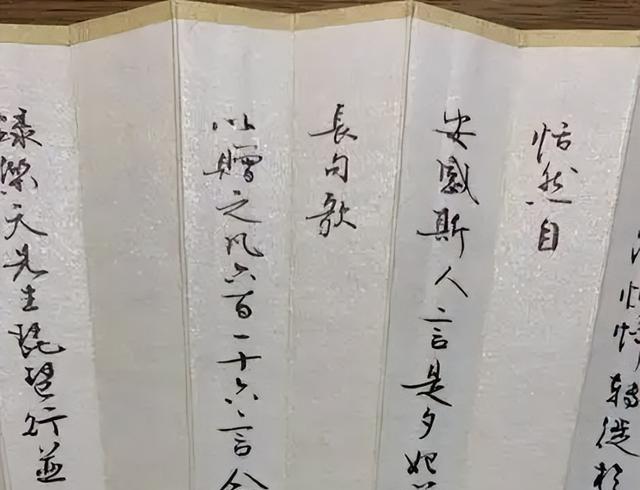 轉徙於
恬然自
安感斯人言是夕始
長句歌
以贈之凡六百一十六言命
錄樂天先生琵琶行並